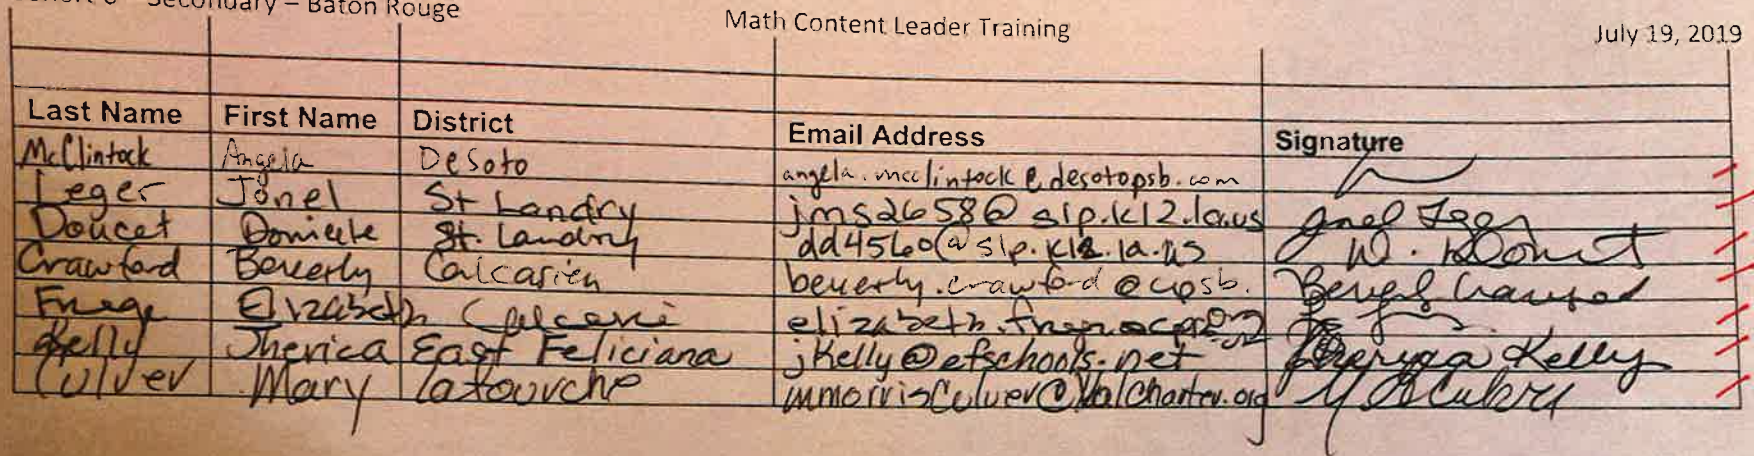 Secondary – Baton Rouge Math Content Leader Training July 19, 2019
Last Name First Name District Email Address Signature
McClintock Angela DeSoto angela.mcclintock@desotopsb.com
Leger Jonel St Landry jms2658@slp.k12.la.us
Doucet Danielle St. Landry dd4560@slp.k12.la.us
Crawford Beverly Calcasieu beverly.crawford@cpsb. Beverly Crawford
Fruge Elizabeth
Kelly Jherica East Feliciana jkelly@efschools.net Jherica Kelly
Culver Mary Lafourche mmorrisculver@Valcharter.org